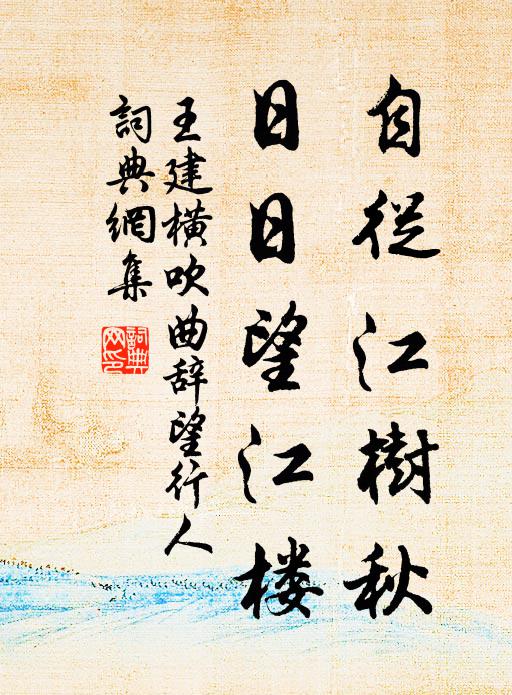 自從江樹秋
日日望江楼
王建橫吹曲辞望行人
詞典網集
詞典
网印